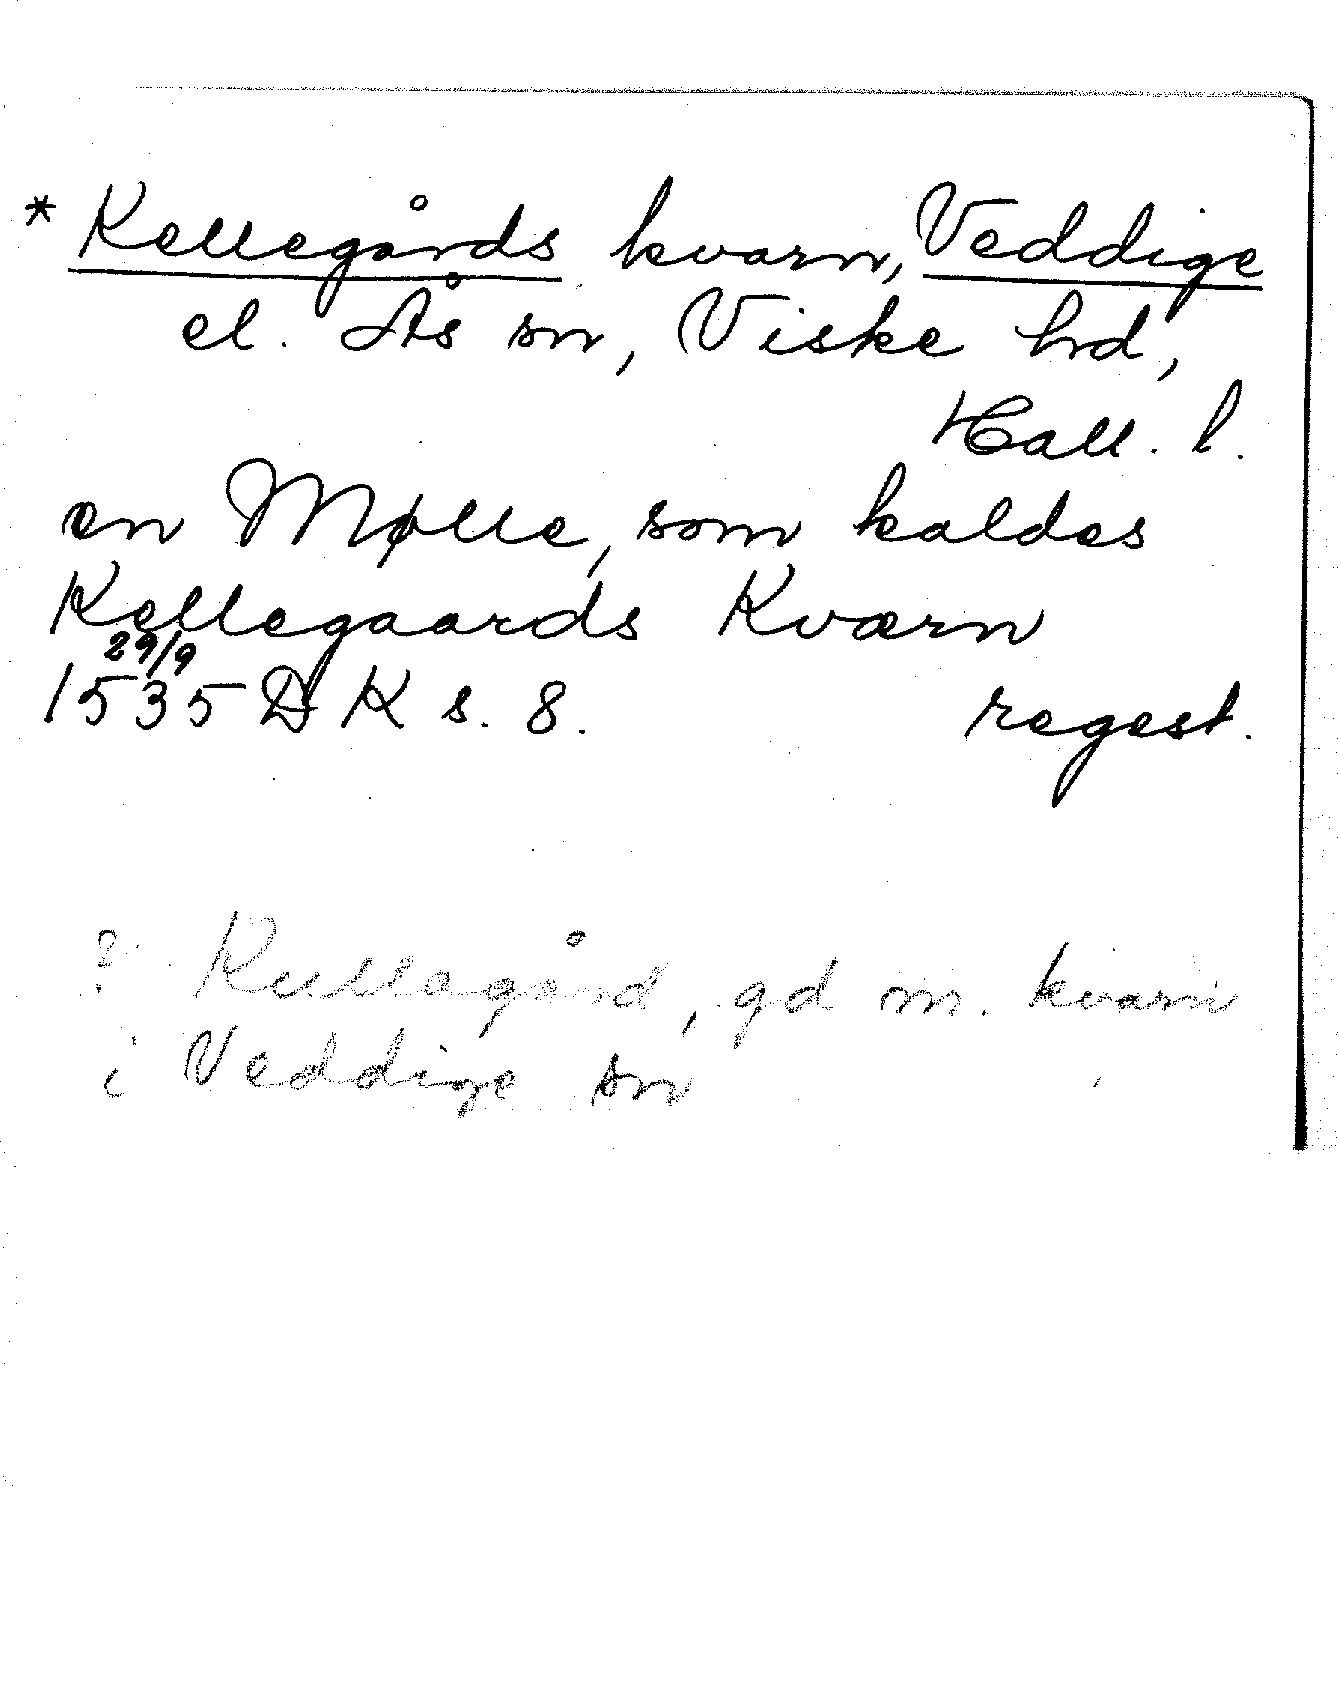 * Kellegårds kvarn, Veddige
el. Ås sn, Viske hd,
Hall. l.
en Mølle, som kaldes
Kellegaards Kværn
29/9
1535 DK s. 8. regest.
? Kullagård, gd m. kvarn
i Veddige sn